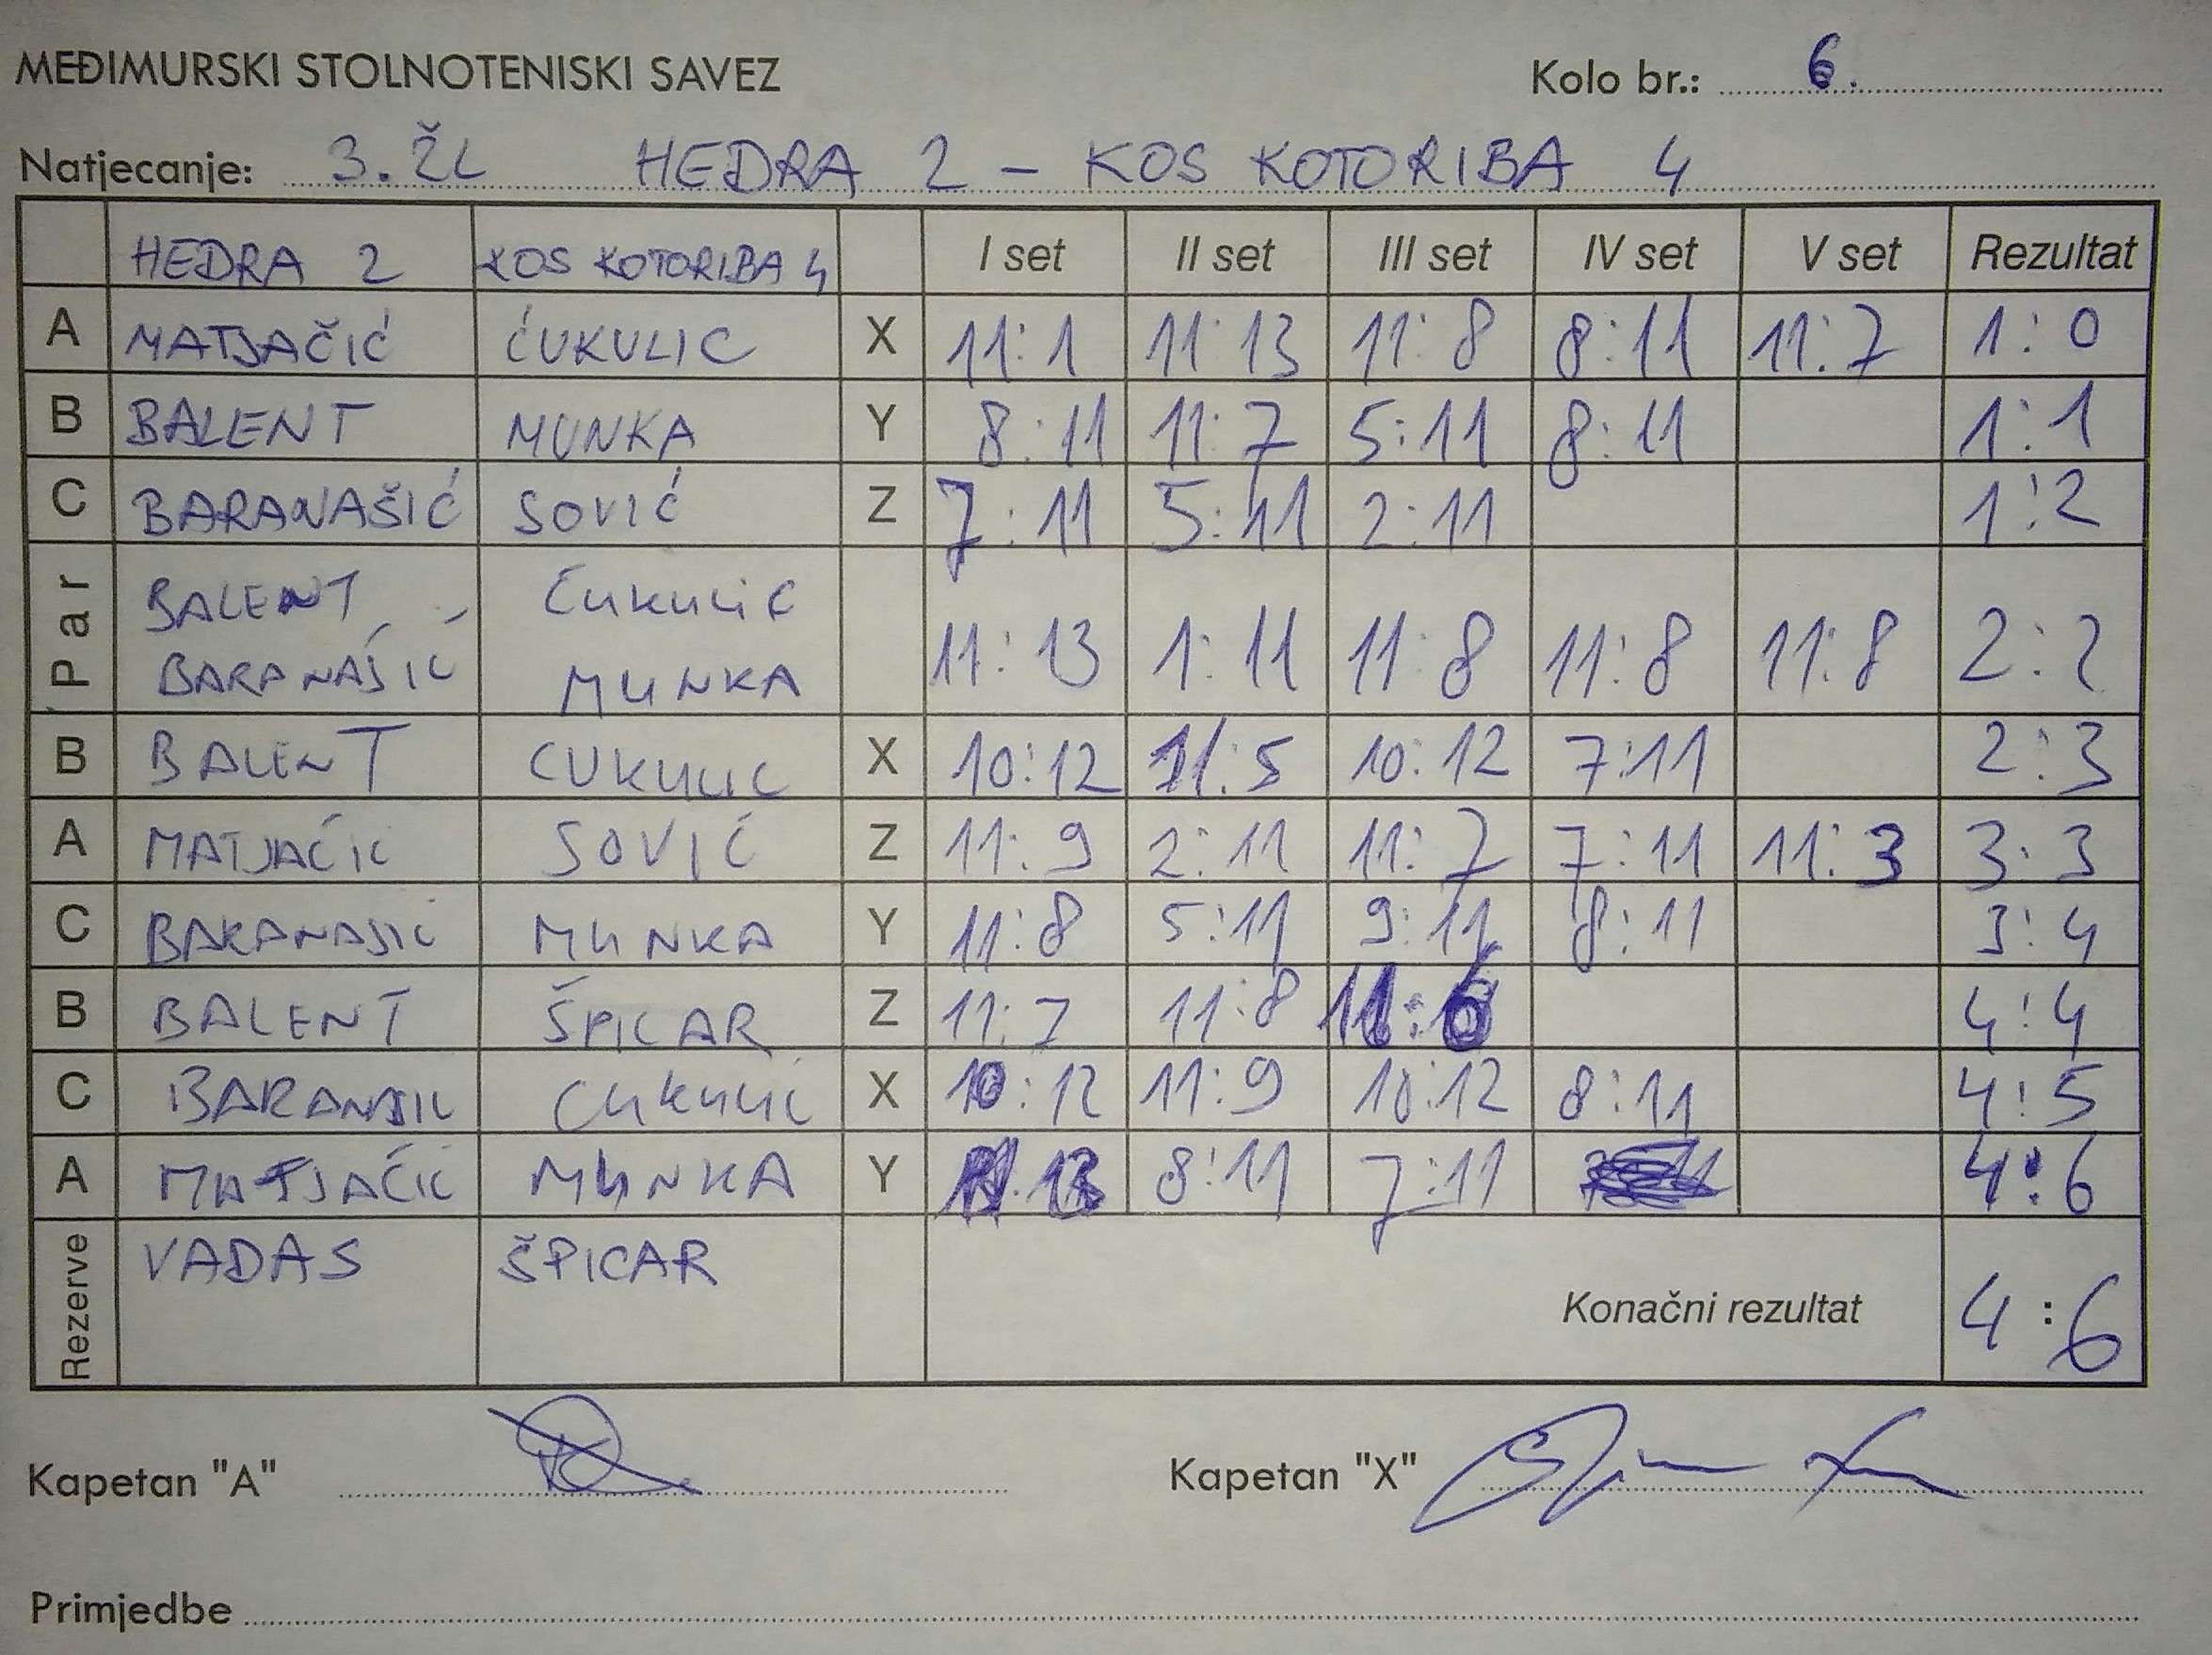 MEĐIMURSKI STOLNOTENISKI SAVEZ Kolo br.: 6.
Natjecanje: 3. ŽL HEDRA 2 - KOS KOTORIBA 4
HEDRA 2 KOS KOTORIBA 4 I set II set III set IV set V set Rezultat
A MATJAČIĆ ĆUKULIC X 11:1 11:13 11:8 8:11 11:7 1:0
B BALENT MUNKA Y 8:11 11:7 5:11 8:11 1:1
C BARANAŠIĆ SOVIĆ Z 7:11 5:11 2:11 1:2
Par BALENT ČUKULIĆ
BARANAŠIĆ MUNKA 11:13 1:11 11:8 11:8 11:8 2:2
B BALENT CUKULIC X 10:12 11:5 10:12 7:11 2:3
A MATJAČIĆ SOVIĆ Z 11:9 2:11 11:7 7:11 11:3 3:3
C BARANASIĆ MUNKA Y 11:8 5:11 9:11 8:11 3:4
B BALENT ŠPICAR Z 11:7 11:8 11:6 4:4
C BARANASIC CUKULIC X 10:12 11:9 10:12 8:11 4:5
A MATJAČIĆ MUNKA Y 8:11 7:11 4:6
Rezerve VADAS ŠPICAR
Konačni rezultat 4:6
Kapetan "A" Kapetan "X"
Primjedbe